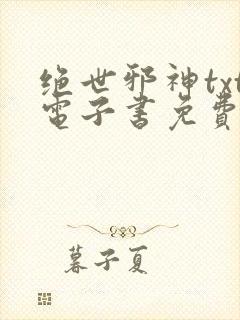 绝世邪神txt
電子書免費
暮子夏